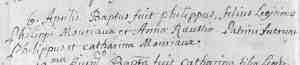 6. Aprilis Baptus fuit philippus, filius Legitimus
Philippi Mouriaux et Anna Rautter Patrini fuerunt
Philippus et catharina Mouriaux.
Bapta fuit catharina filia